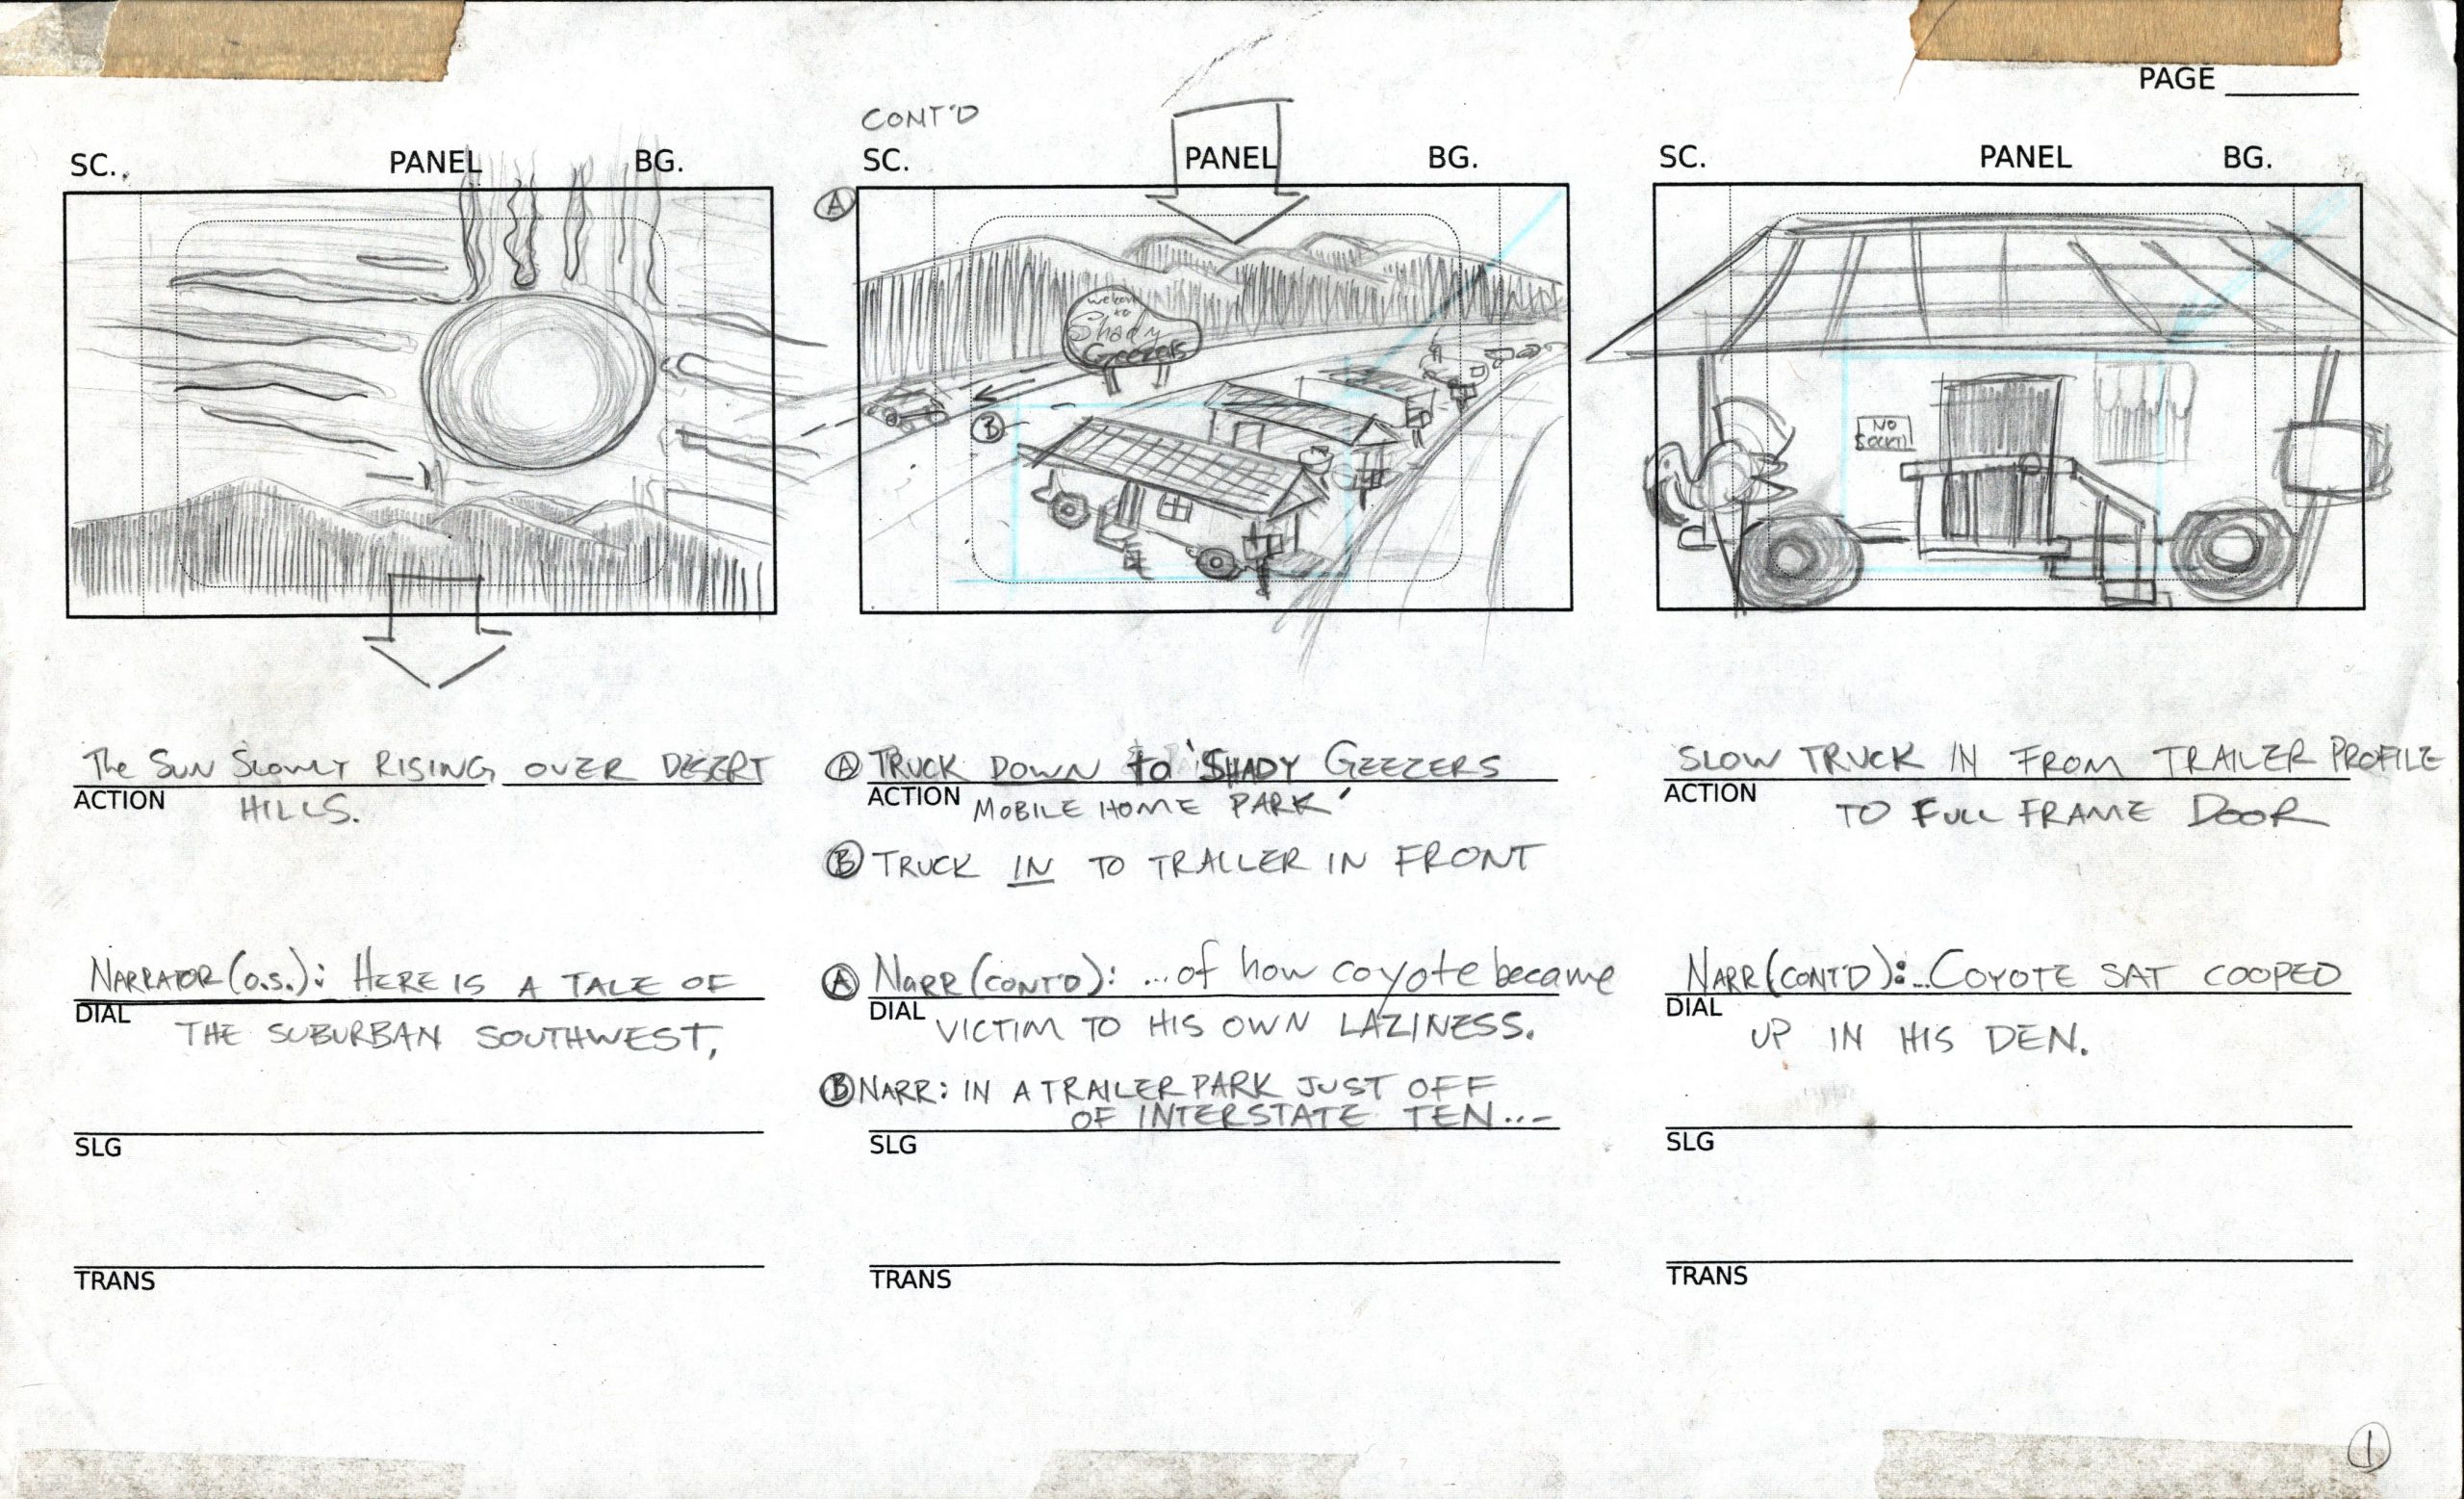 PAGE
CONT'D
SC. PANEL BG.
SC. PANEL BG.
SC. PANEL BG.
A
Welcome
to
Shady
Geezers
B
NO
The SUN SLOWLY RISING OVER DESERT
ACTION
HILLS.
A TRUCK DOWN to 'SHADY GEEZERS
ACTION
MOBILE HOME PARK'
B TRUCK IN TO TRAILER IN FRONT
SLOW TRUCK IN FROM TRAILER PROFILE
ACTION
TO FULL FRAME DOOR
NARRATOR (O.S.): HERE IS A TALE OF
DIAL
THE SUBURBAN SOUTHWEST,
A NARR (CONT'D): ...of how coyote became
DIAL
VICTIM TO HIS OWN LAZINESS.
B NARR: IN A TRAILER PARK JUST OFF
OF INTERSTATE TEN...
NARR (CONT'D): ...COYOTE SAT COOPED
DIAL
UP IN HIS DEN.
SLG
SLG
SLG
TRANS
TRANS
TRANS
1